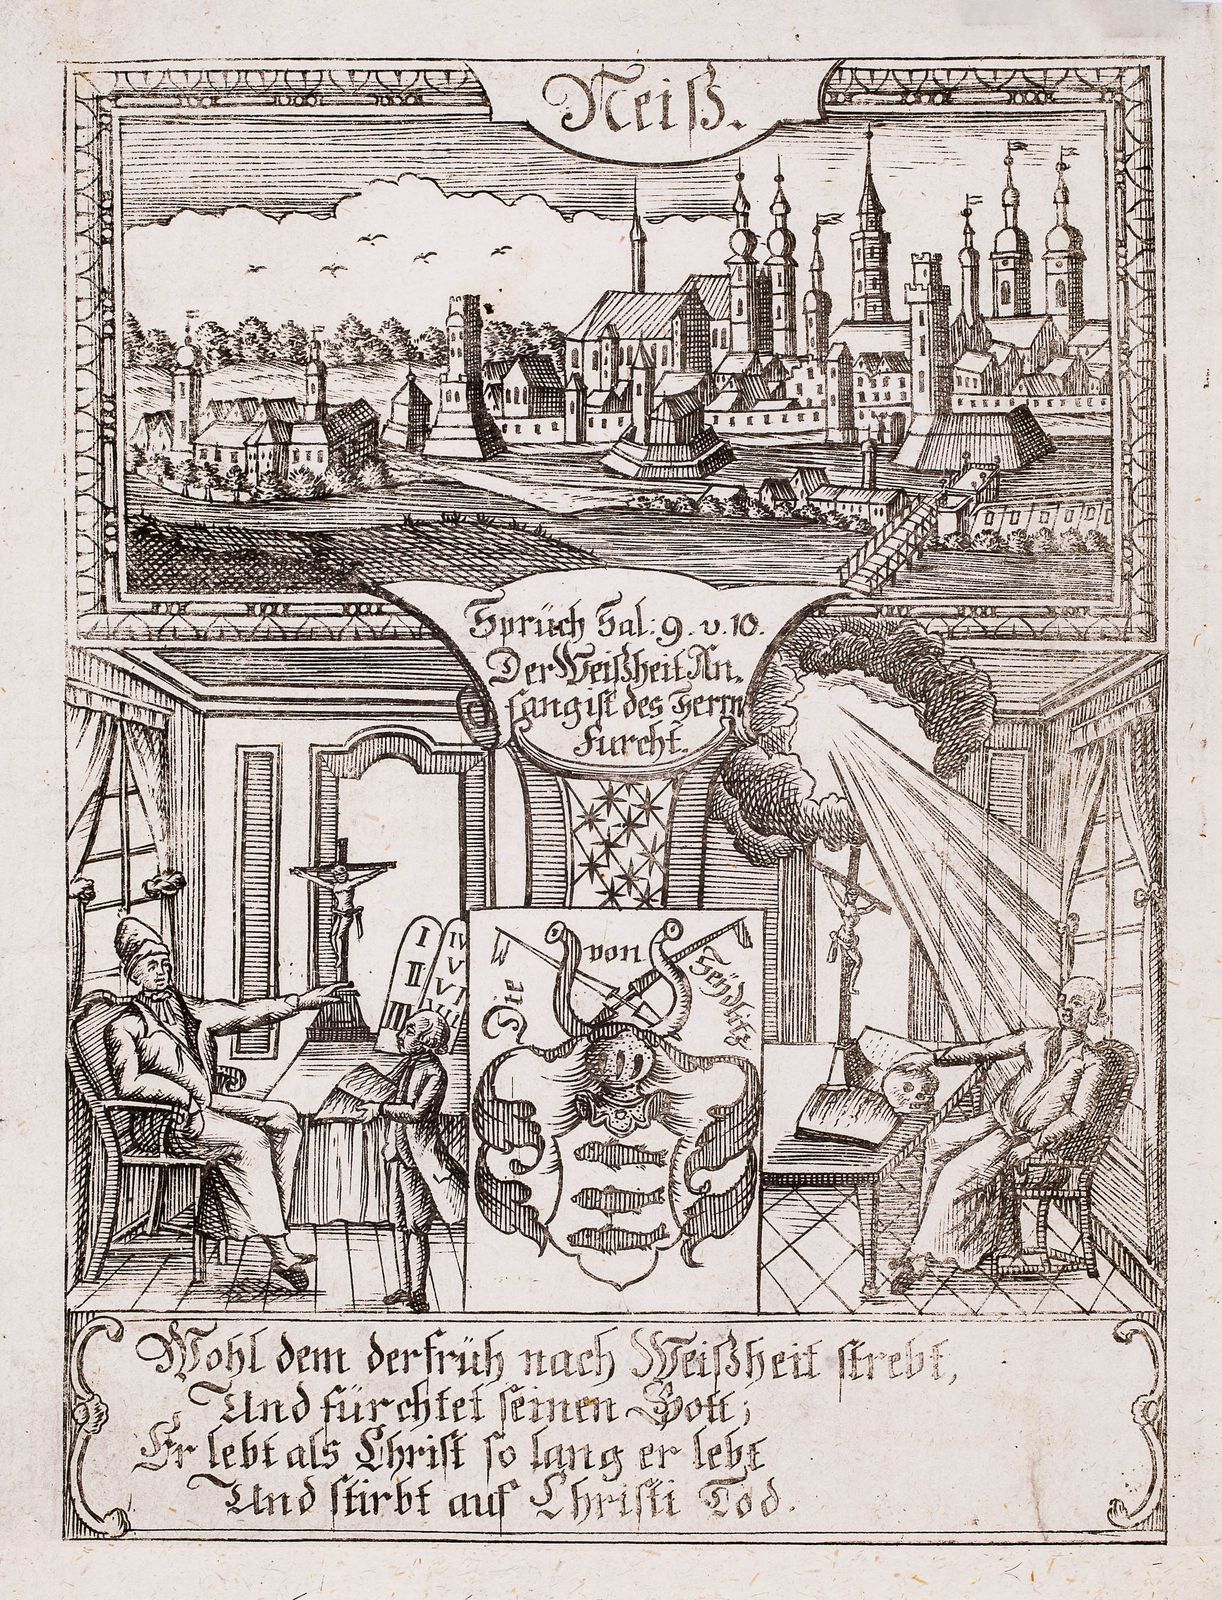 Neiß.
Sprüch Sal: 9. v. 10.
Der Weißheit An,
fang ist des Herrn
Furcht.
I
II
III
IV
V
VI
Die von Seÿdlitz
Wohl dem der früh nach Weißheit strebt,
Und fürchtet seinen Gott;
Er lebt als Christ so lang er lebt
Und stirbt auf Christi Tod.